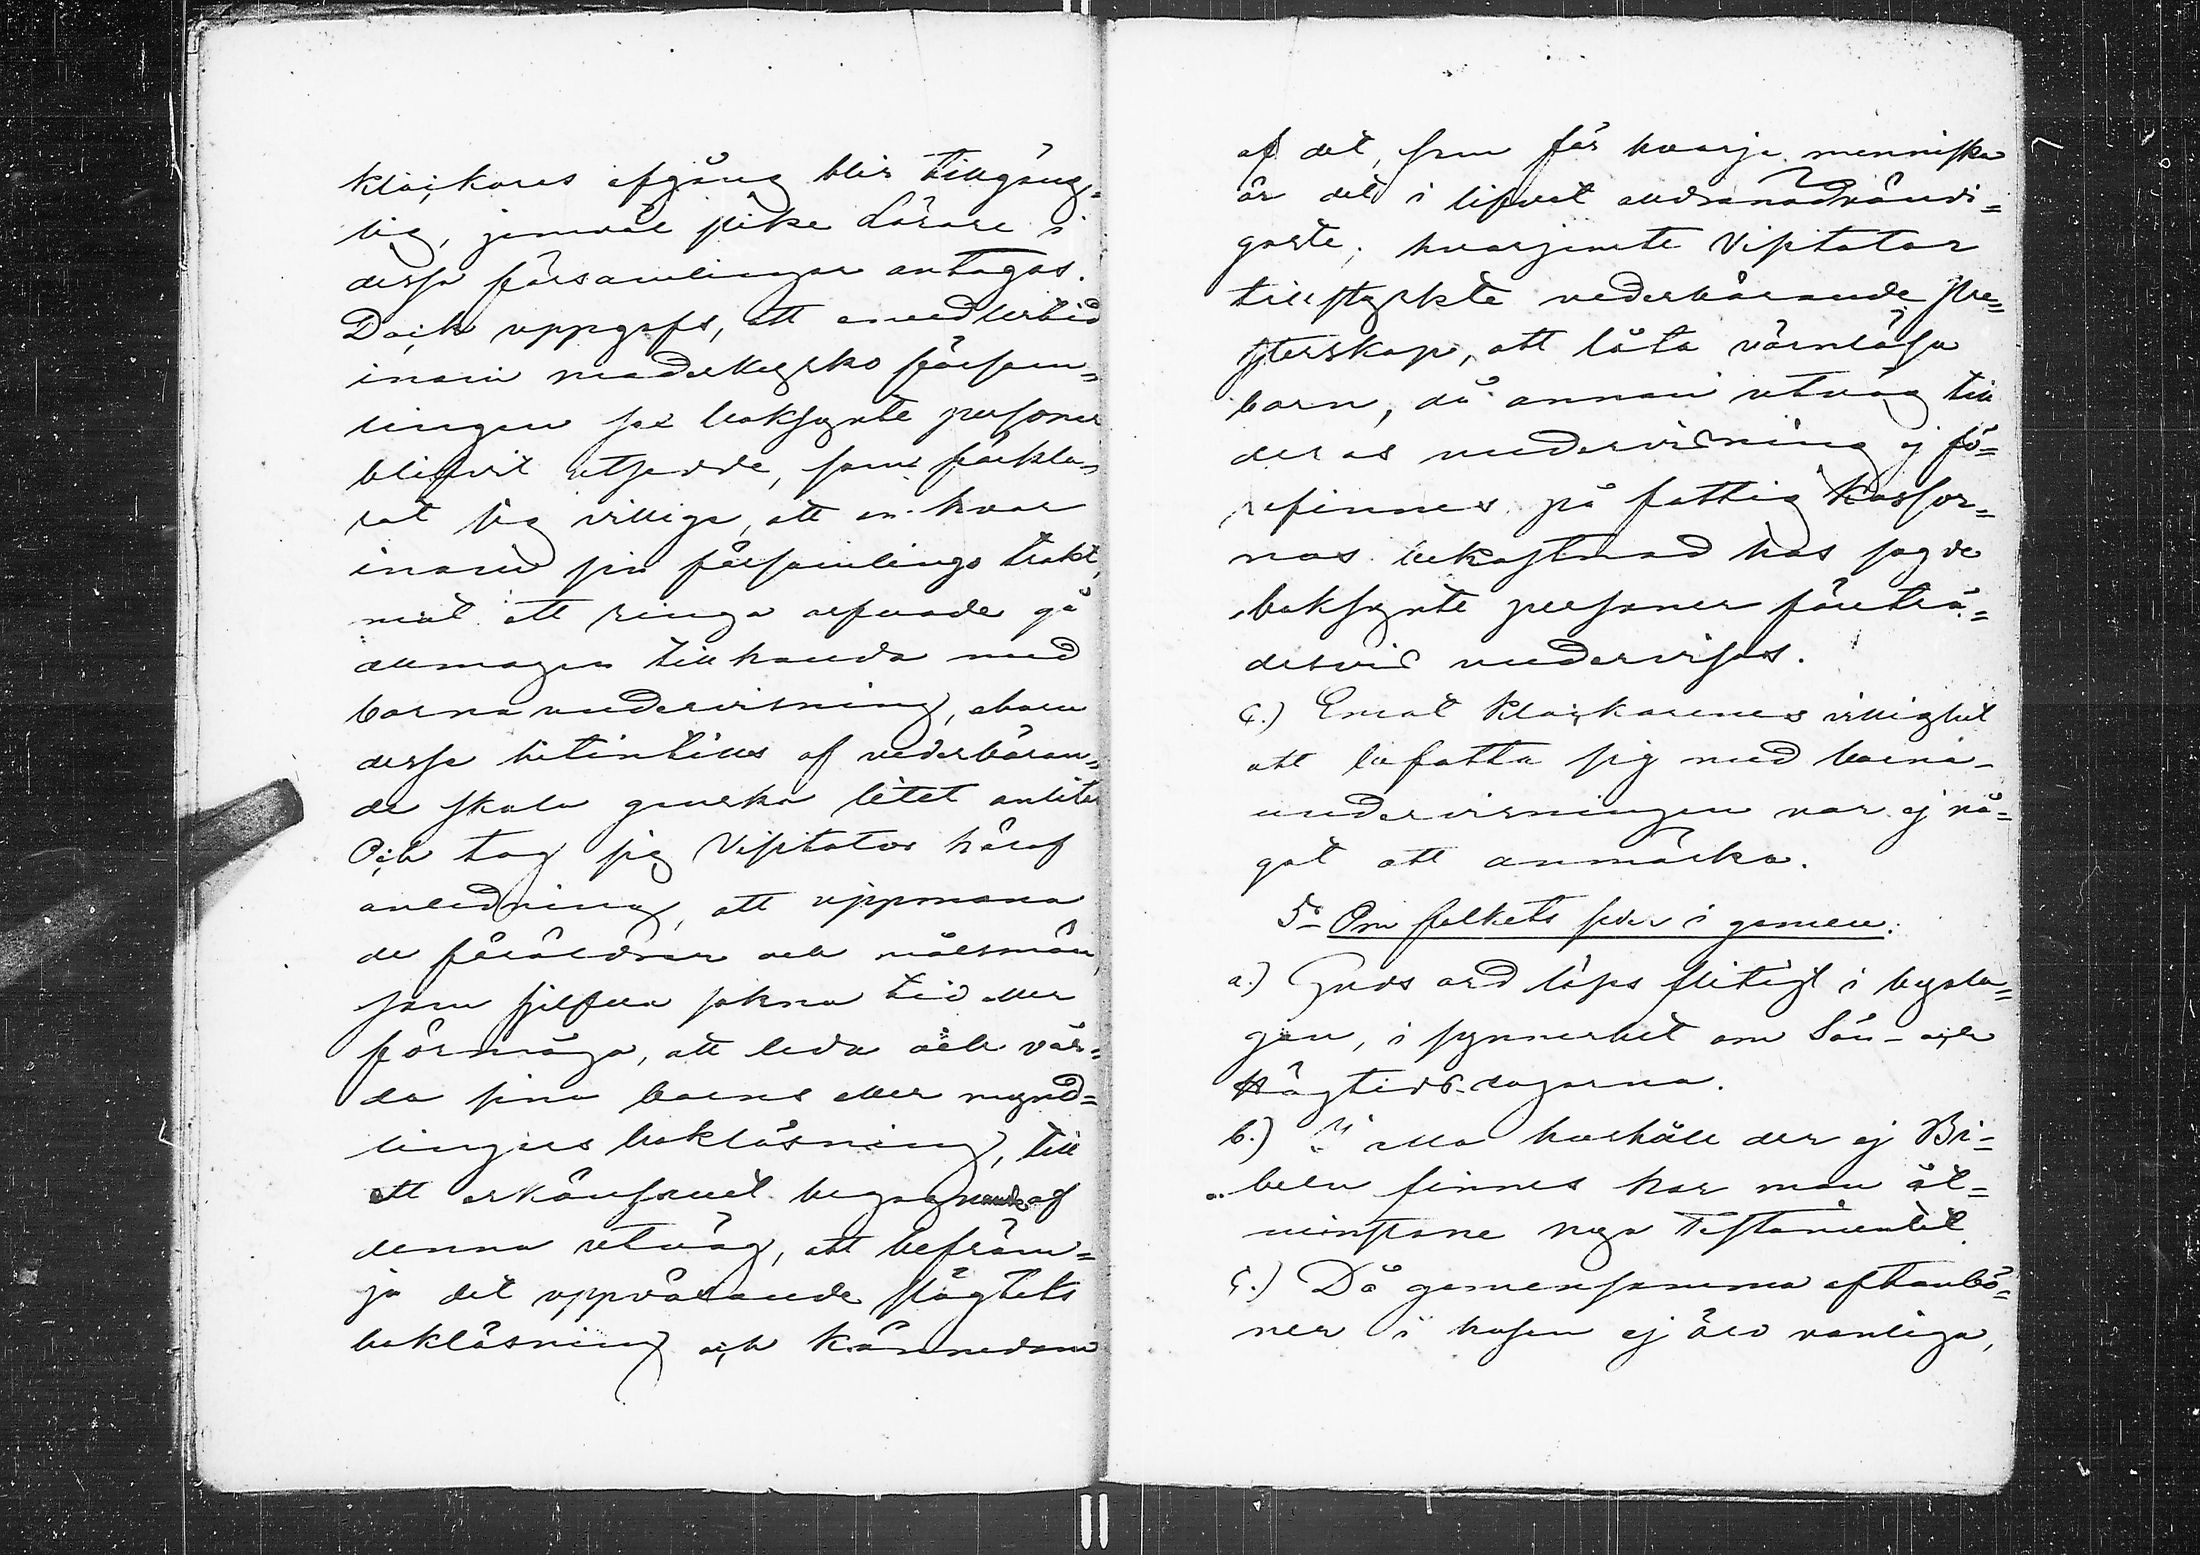 klockares afgång blir tillgäng=
lig, jemväl slike Lärare i
dessa församlingar antagas.
Dock uppgafs, att emedlertid
inom moderkyrko försam=
lingen sex boksynte personer
blifvit utsedde, som förkla=
rat sig villiga, att en hvar
inom sin församlings trakt,
mot ett ringa arfvode gå
allmogen tillhanda med
barna undervisning, ehuru
desse hitintills af vederböran=
de skola ganska litet anlitas
Och tog sig Visitator häraf
anledning, att uppmana
de föräldrar och målsmän,
som sjelfva sakna tid eller
förmåga, att leda och vår=
da sina barns eller mynd=
lingars bokläsning, till
ett erkänsamt begagnande af
denna utväg, att befräm=
ja det uppväxande slägtets
bokläsning och kännedom
af det, som för hvarje menniska
är det i lifvet allranödvändi=
gaste; hvarjemte Visitator
tillstyrkte vederbörande Pre=
sterskap, att låta värnlösa
barn, då annan utväg till
deras undervisning ej fö=
refinnes på fattig kassor=
nas bekostnad hos sagde
boksynte personer företrä=
desvis undervisas.
c.) Emot klockarenes villighet
att befatta sig med barna-
undervisningen var ej nå=
got att anmärka.
5o Om folkets seder i gemen.
a.) Guds ord läses flitigt i byala=
gen, i synnerhet om Sön- och
Högtids-dagarna.
b.) I alla hushåll der ej Bi=
beln finnes har man åt=
minstone nya Testamentet.
c.) Då gemensamma aftonbö=
ner i husen ej äro vanliga,